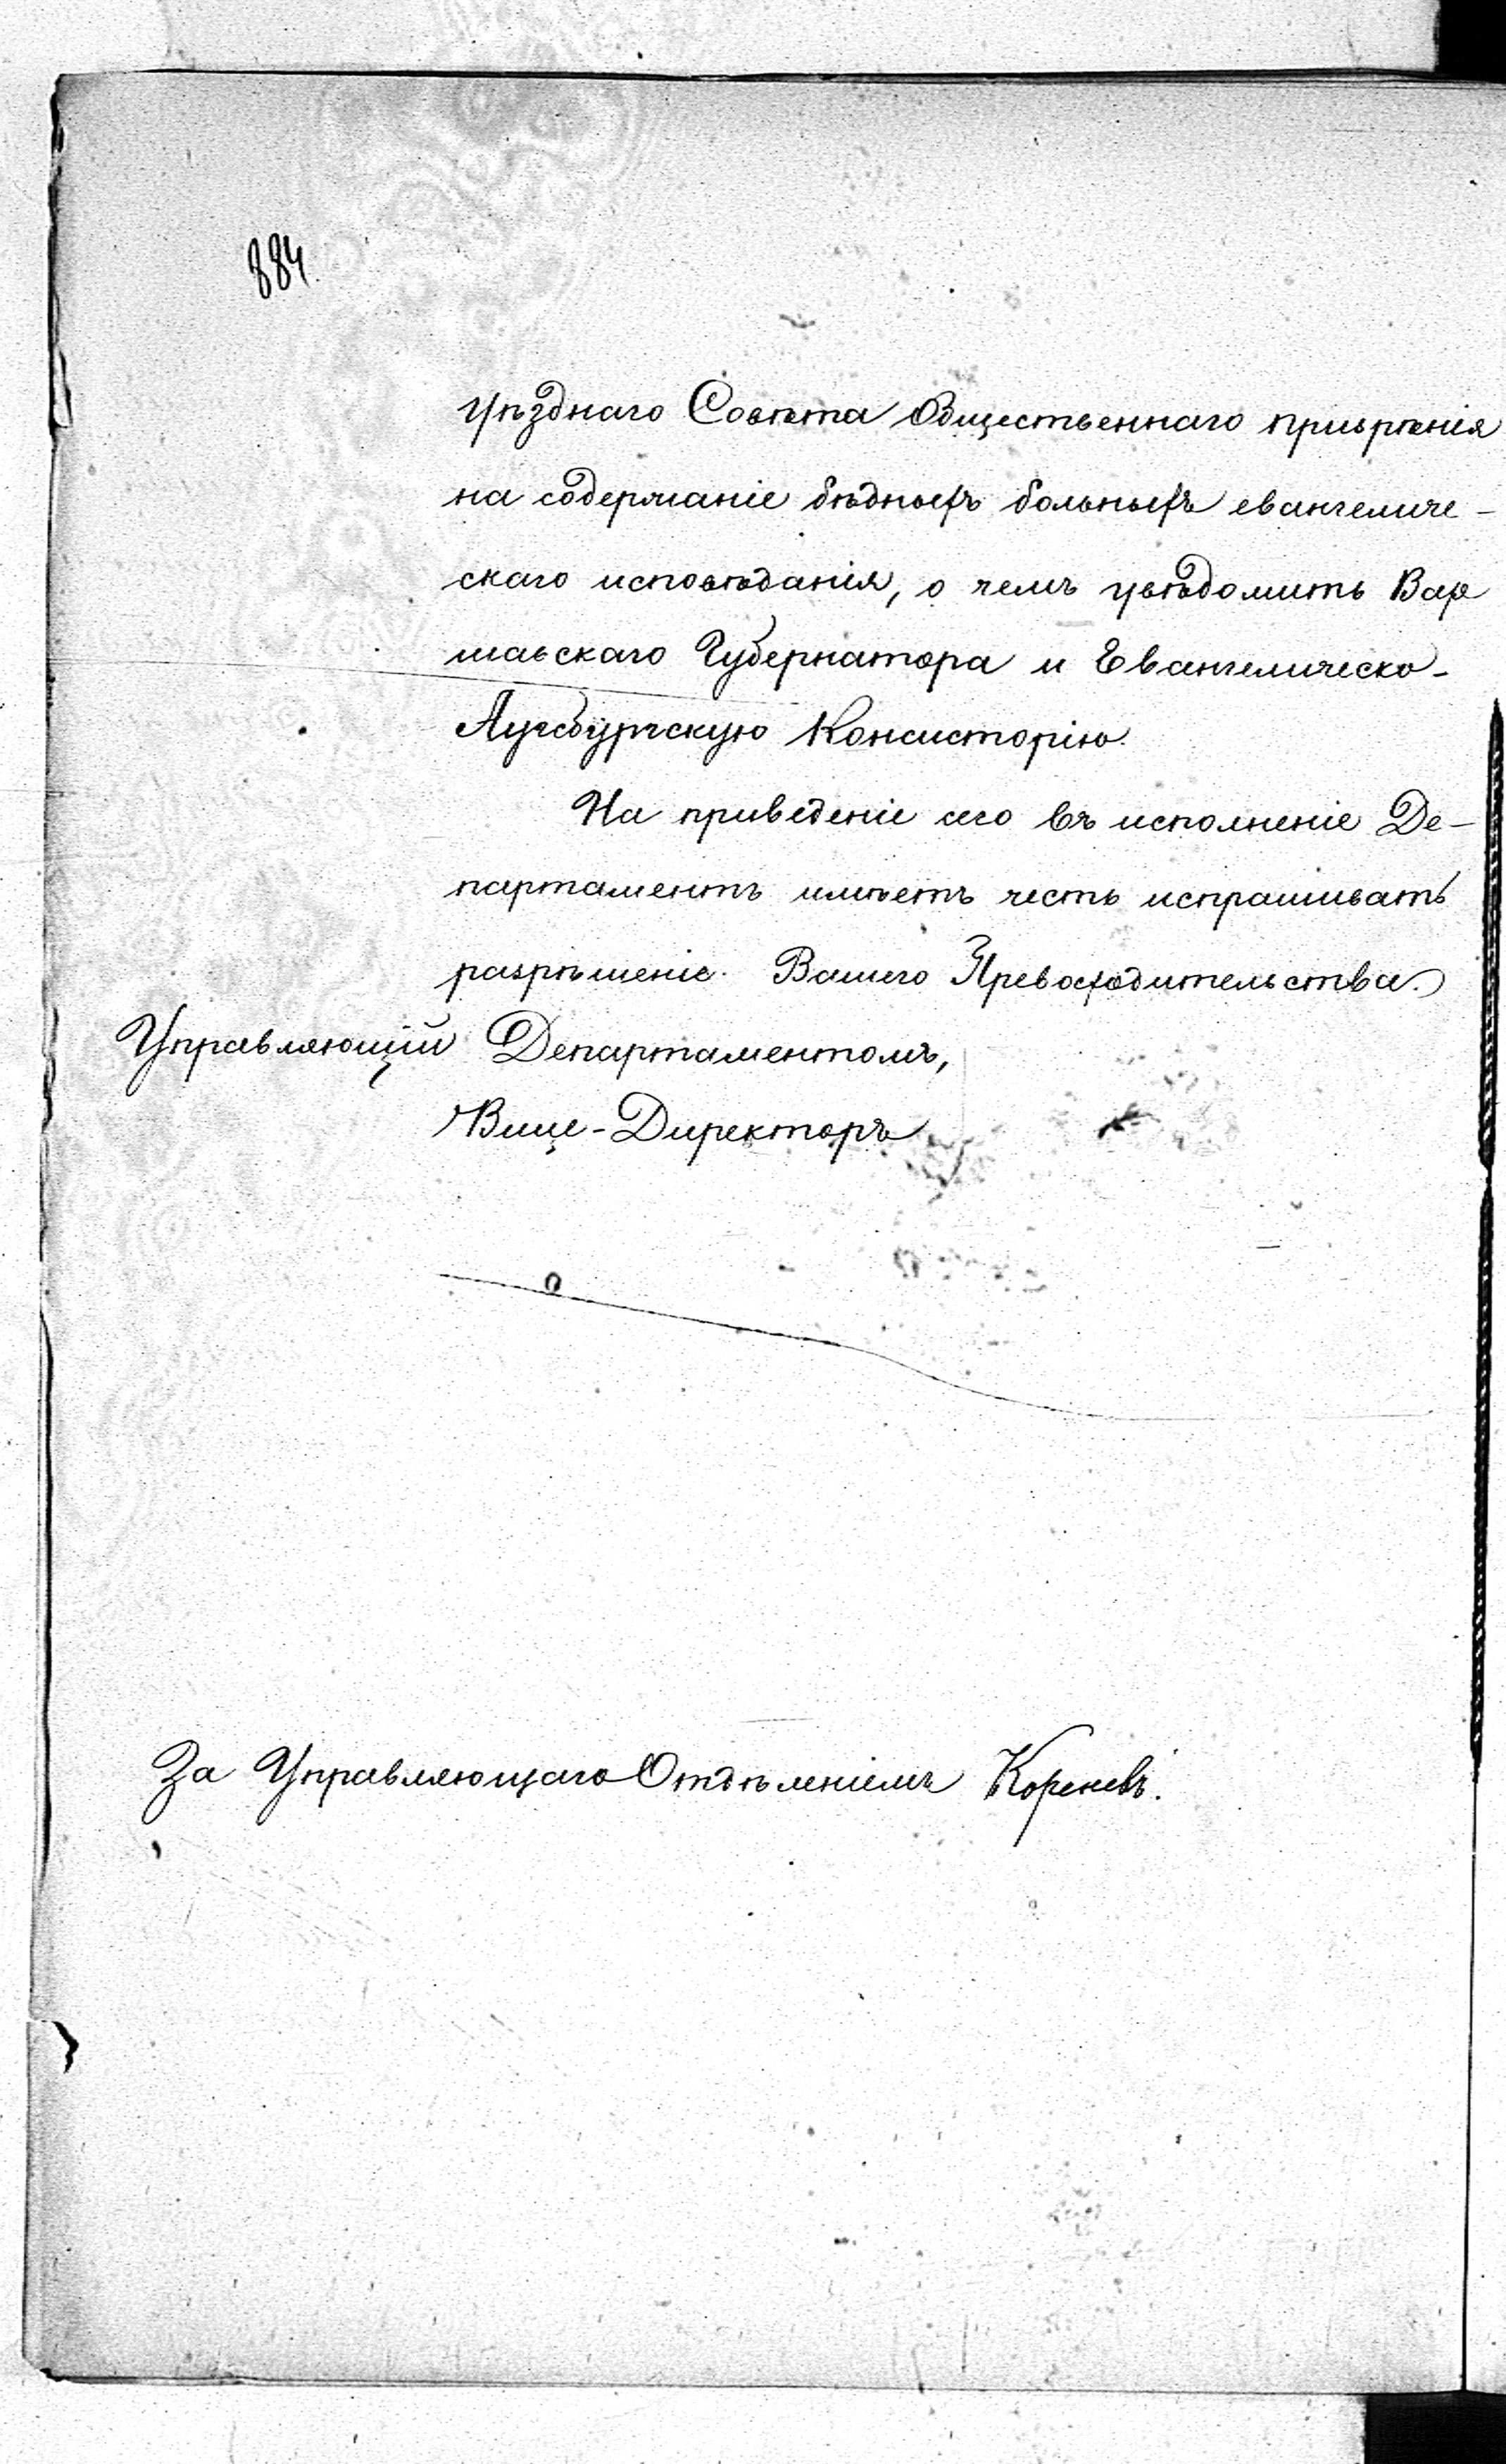 884.
уѣзднаго Совѣта Общественнаго призрѣнія
на содержаніе бѣдныхъ больныхъ евангеличе-
скаго исповѣданія, о чемъ увѣдомить Вар
шавскаго Губернатора и Евангелическо-
Аугсбургскую Консисторію.
На приведеніе сего въ исполненіе Де-
партаментъ имѣетъ честь испрашивать
разрѣшеніе Вашего Превосходительства.
Управляющій Департаментомъ,
Вице-Директоръ
За Управляющаго Отдѣленіемъ Кореневъ.